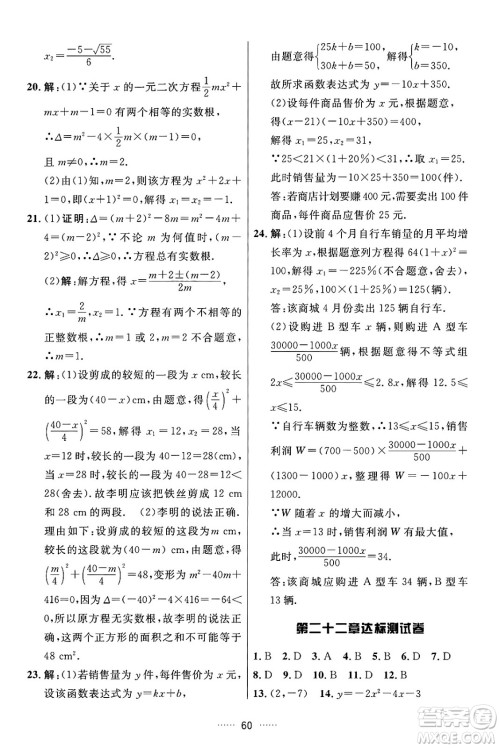 x₂=(-5-√55)/6.
20. 解：(1)∵关于 x 的一元二次方程 1/2 mx²+
mx+m-1=0 有两个相等的实数根，
∴Δ=m²-4×1/2 m×(m-1)=0，
且 m≠0，∴m=2.
(2)由(1)知，m=2，则该方程为 x²+2x+
1=0，即(x+1)²=0，解得 x₁=x₂=-1.
21. (1)证明：Δ=(m+2)²-8m=m²-4m+
4=(m-2)². ∵不论 m 为何值时，(m-
2)²≥0，∴Δ≥0. ∴方程总有实数根.
(2)解：解方程，得 x=(m+2±(m-2))/2m，
∴x₁=2/m，x₂=1. ∵方程有两个不相等的
正整数根，∴m=1 或 2. ∵m=2 不合题意，
∴m=1.
22. 解：(1)设剪成的较短的一段为 x cm，较
长的一段为(40-x) cm，由题意，得(x/4)²
+((40-x)/4)²=58，解得 x₁=12，x₂=28，
当 x=12 时，较长的一段为 40-12=28(cm)，
当 x=28 时，较长的一段为 40-28=12<
28(舍去). 故李明应该把铁丝剪成 12 cm
和 28 cm 的两段.
(2)李明的说法正确. 理由如下：设剪成的较短的一段为 m cm，
较长的一段就为(40-m) cm，由题意得
(m/4)²+((40-m)/4)²=48，变形为 m²-40m+
416=0. ∵Δ=(-40)²-4×416=-64<
0，∴原方程无实数根. ∴李明的说法正确，
这两个正方形的面积之和不可能等于
48 cm².
23. 解：(1)若设销售量为 y 件，售价为 x 元/件，
设该函数表达式为 y=kx+b，
由题意得{25k+b=100，
30k+b=50，解得{k=-10，
b=350，
故所求函数表达式为 y=-10x+350.
(2)设每件商品售价为 x 元，根据题意，得
(x-21)(-10x+350)=400，
解得 x₁=25，x₂=31.
∵25<21×(1+20%)=25.2<31，
∴x=31 不合题意，舍去.
答：若商店计划要赚 400 元，则每件商
品的售价应定为 25 元.
24. 解：(1)设前 4 个月自行车销量的月平均增
长率为 x，根据题意列方程 64(1+x)²=
100，解得 x=-225%(舍去)或 x=25%.
100×(1+25%)=125(辆).
答：该商城 4 月份卖出 125 辆自行车.
(2)设购进 B 型车 x 辆，则购进 A 型车
(30000-1000x)/500 辆，根据题意得不等式组
2x≤(30000-1000x)/500≤2.8x，解得 12.5≤
x≤15. ∵自行车辆数为整数，∴13≤x≤15. 销售
利润 W=(700-500)×(30000-1000x)/500+
(1300-1000)x，整理得 W=-100x+12000.
∵W 随着 x 的增大而减小，
∴当 x=13 时，销售利润 W 有最大值.
此时，(30000-1000x)/500=34.
答：该商城应购进 A 型车 34 辆，B 型车
13 辆.
第二十二章达标测试卷
1. B 2. D 3. B 4. D 5. B 6. D 7. D
8. D 9. D 10. D 11. D 12. D
13. (2，-7) 14. y=-2x²-4x-3
60